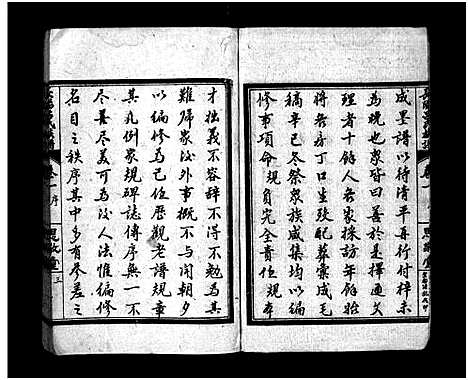 成墨譜以待清平再行付梓未
為晚也眾皆曰善於是擇通矣
理者十餘人每家採訪年餘始
將各房丁口生歿配葬彙成毛
稿辛已冬祭眾族咸集均以編
修事項命規負完全責任規自
才拙義不容辭不得不勉為其
難歸家後外事概不與聞朝夕
以編修為己任歷觀老譜規章
其凡例家規碑誌傳序無一不
盡善盡美可以為法惟編修
名目之秩序其中多有參差之
卷一
序
三